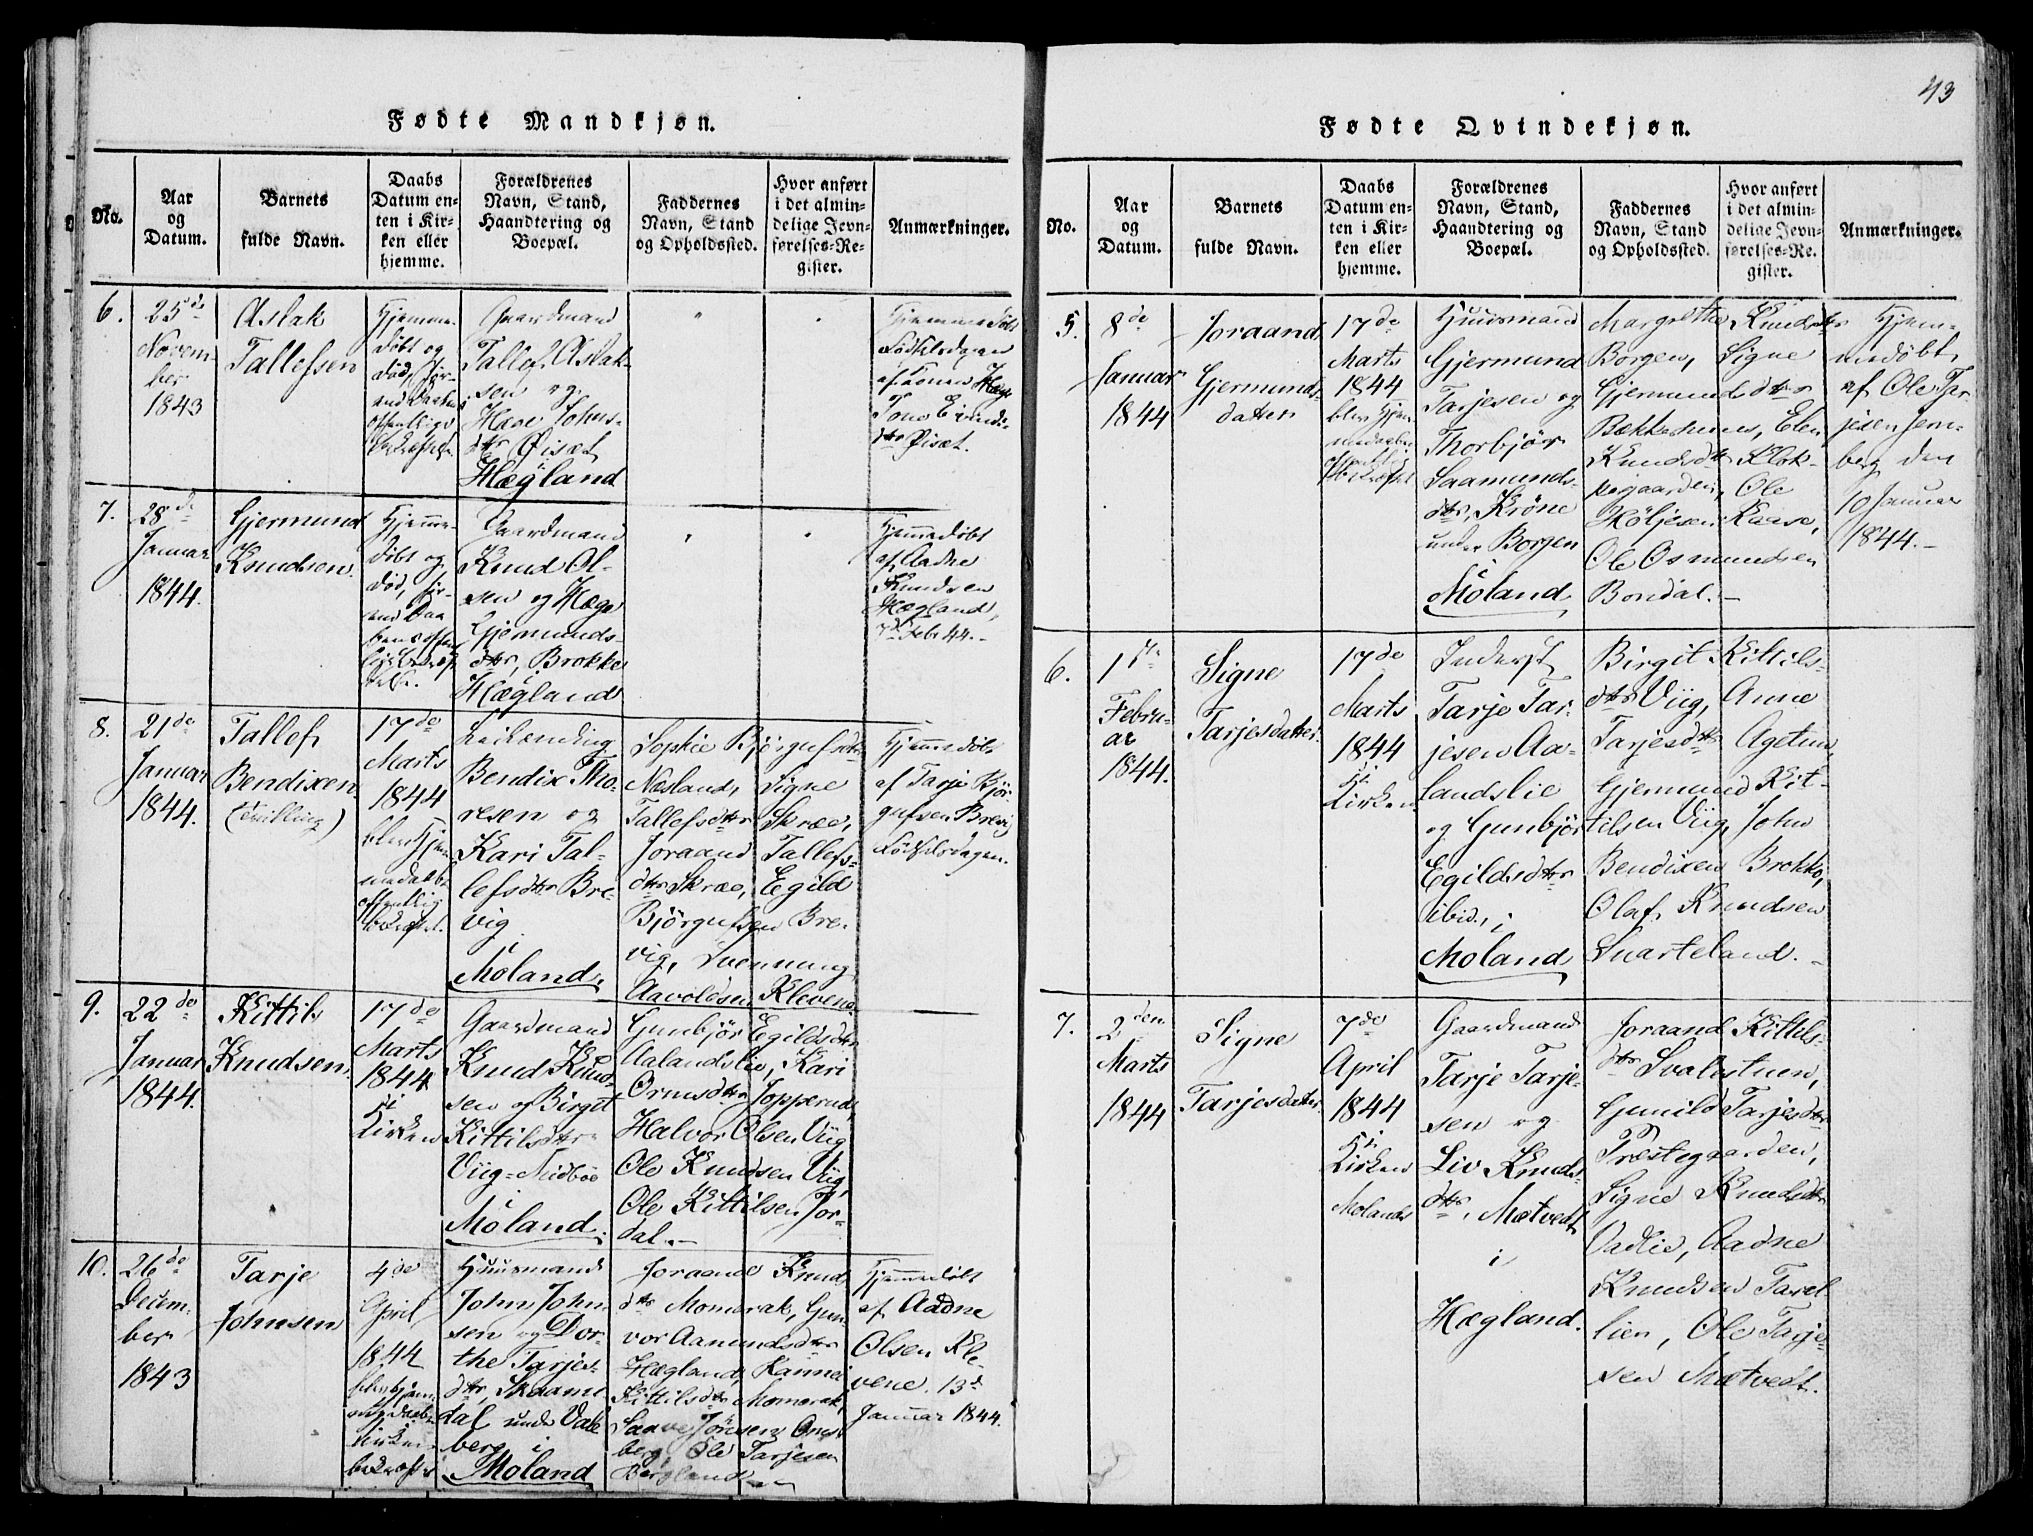 43
Fødte Mandkjøn.
No.
Aar
og
Datum.
Barnets
fulde Navn.
Daabs
Datum en-
ten i Kir-
ken eller
hjemme.
Forældrenes
Navn, Stand,
Haandtering og
Boepæl.
Faddernes
Navn, Stand
og Opholdssted.
Hvor anført
i det almin-
delige Jevn-
førelses-Re-
gister.
Anmærkninger.
6.
25de
Novem-
ber
1843
Aslak
Tallefsen
Hjemme-
døbt og
død, før-
end Daaben
offentlige
Gaardmand
Tallef Aslak-
sen og
Hæge Johns-
dtr Øisæt
Hægland
Hjemmedøbt
Fødselsdagen
af Konen
Tone Eivinds-
dtr Øisæt.
7.
28de
Januar
1844.
Gjermund
Knudsen.
Hjemme-
døbt og
død, før-
end Daa
bens offent
Gaardmand
Knud Ol-
sen og Hæge
Gjermunds-
dtr, Brokke
i
Hægland
Hjemmedøbt
af Aadne
Knudsen
Hægland,
7de Febr 44.-
8.
21de
Januar
1844.
Tallef
Bendixen.
(tvilling)
17de
Marts
1844
blev Hjem
medaab
offentlig
bekræftet.
Bendix Tho-
resen og
Kari Tal-
lefsdtr Bre-
vig
i
Moland.
Sophie Bjørgufsdtr
Næsland, Signe
Tallefsdtr Skræe,
Joraand Tallefs-
dtr Skræe, Egild
Bjørgufsen Bre-
vig, Svenning
Aavoldsen Klevene.
Hjemmedøbt
af Tarje Bjør-
gufsen Brevig
Fødselsdagen.
9.
22de
Januar
1844.
Kittil
Knudsen.
17de
Marts
1844
i
Kirken
Gaardmand
Knud Knud-
sen og Birget
Kittilsdtr
Viig-Nidbøe
i
Moland.
Gunbjør Egildsdtr
Aalandslie, Kari
Ormsdtr Topperud,
Halvor Olsen Viig
Ole Knudsen Viig,
Ole Kittilsen Jor-
dal.-
10.
26de
Decem-
ber
1843
Tarje
Johnsen
4de
April
1844
blev hjem
medaab
i Kirken
bekræftet
Huusmand
John John-
sen og Dor-
the Tarjes-
dtr, Skaam-
dal under Vaa
berg i
Moland
Joraand Knuds
dtr Momrak, Gun-
vor Aanundsdtr
Hægland, Kanne
Kittilsdtr Momrak,
Saave Jonsen Ons
berg, Ole Tarjesen
Bergland
Hjemmedøbt
af Aadne
Olsen Kle-
vene. 13d
Januar 1844.
Fødte Qvindekjøn.
No.
Aar
og
Datum.
Barnets
fulde Navn.
Daabs
Datum en-
ten i Kir-
ken eller
hjemme.
Forældrenes
Navn, Stand,
Haandtering og
Boepæl.
Faddernes
Navn, Stand
og Opholdssted.
Hvor anført
i det almin-
delige Jevn-
førelses-Re-
gister.
Anmærkninger.
5.
8de
Januar
1844
Joraand
Gjermunds-
datter
17de
Marts
1844
blev Hjem
medaaben
offentlig
bekræftet
Huusmand
Gjermund
Tarjesen og
Thorbjør
Saamunds-
dtr, Krone
under Borgen
i
Moland
Margrethe Knudsdtr
Borgen, Signe
Gjermundsdtr
Bækkehuus, Elen
Knudsdtr Klok-
kergaarden, Ole
Høljesen Kaase,
Ole Osmundsen
Bondal.-
Hjem-
medøbt
af Ole Tar
jesen Jem-
berg den
10 Januar
1844.-
6.
1ste
Febru-
ar
1844.
Signe
Tarjesdatter
17de
Marts
1844
i
Kirken
Inderst
Tarje Tar-
jesen Aa-
landslie
og Gunbjør
Egildsdtr
ibid., i
Moland
Birgit Kittils-
dtr Viig, Anne
Tarjesdtr Agetun,
Gjermund Kit-
tilsen Viig, John
Bendixen Brokke,
Olaf Knudsen
Svarteland.-
7.
2den
Marts
1844
Signe
Tarjesdatter
7de
April
1844
i
Kirken
Molands
Gaardmand
Tarje Tarje-
sen og
Liv Knuds-
dtr, Mætvedt
i
Hægland.
Joraand Kittils-
dtr Svalestuen,
Gunild Tarjesdtr
Præstegaarden,
Signe Knudsdtr
Vadlie, Aadne
Knudsen Tarel
lien, Ole Tarje-
sen Mætvedt.